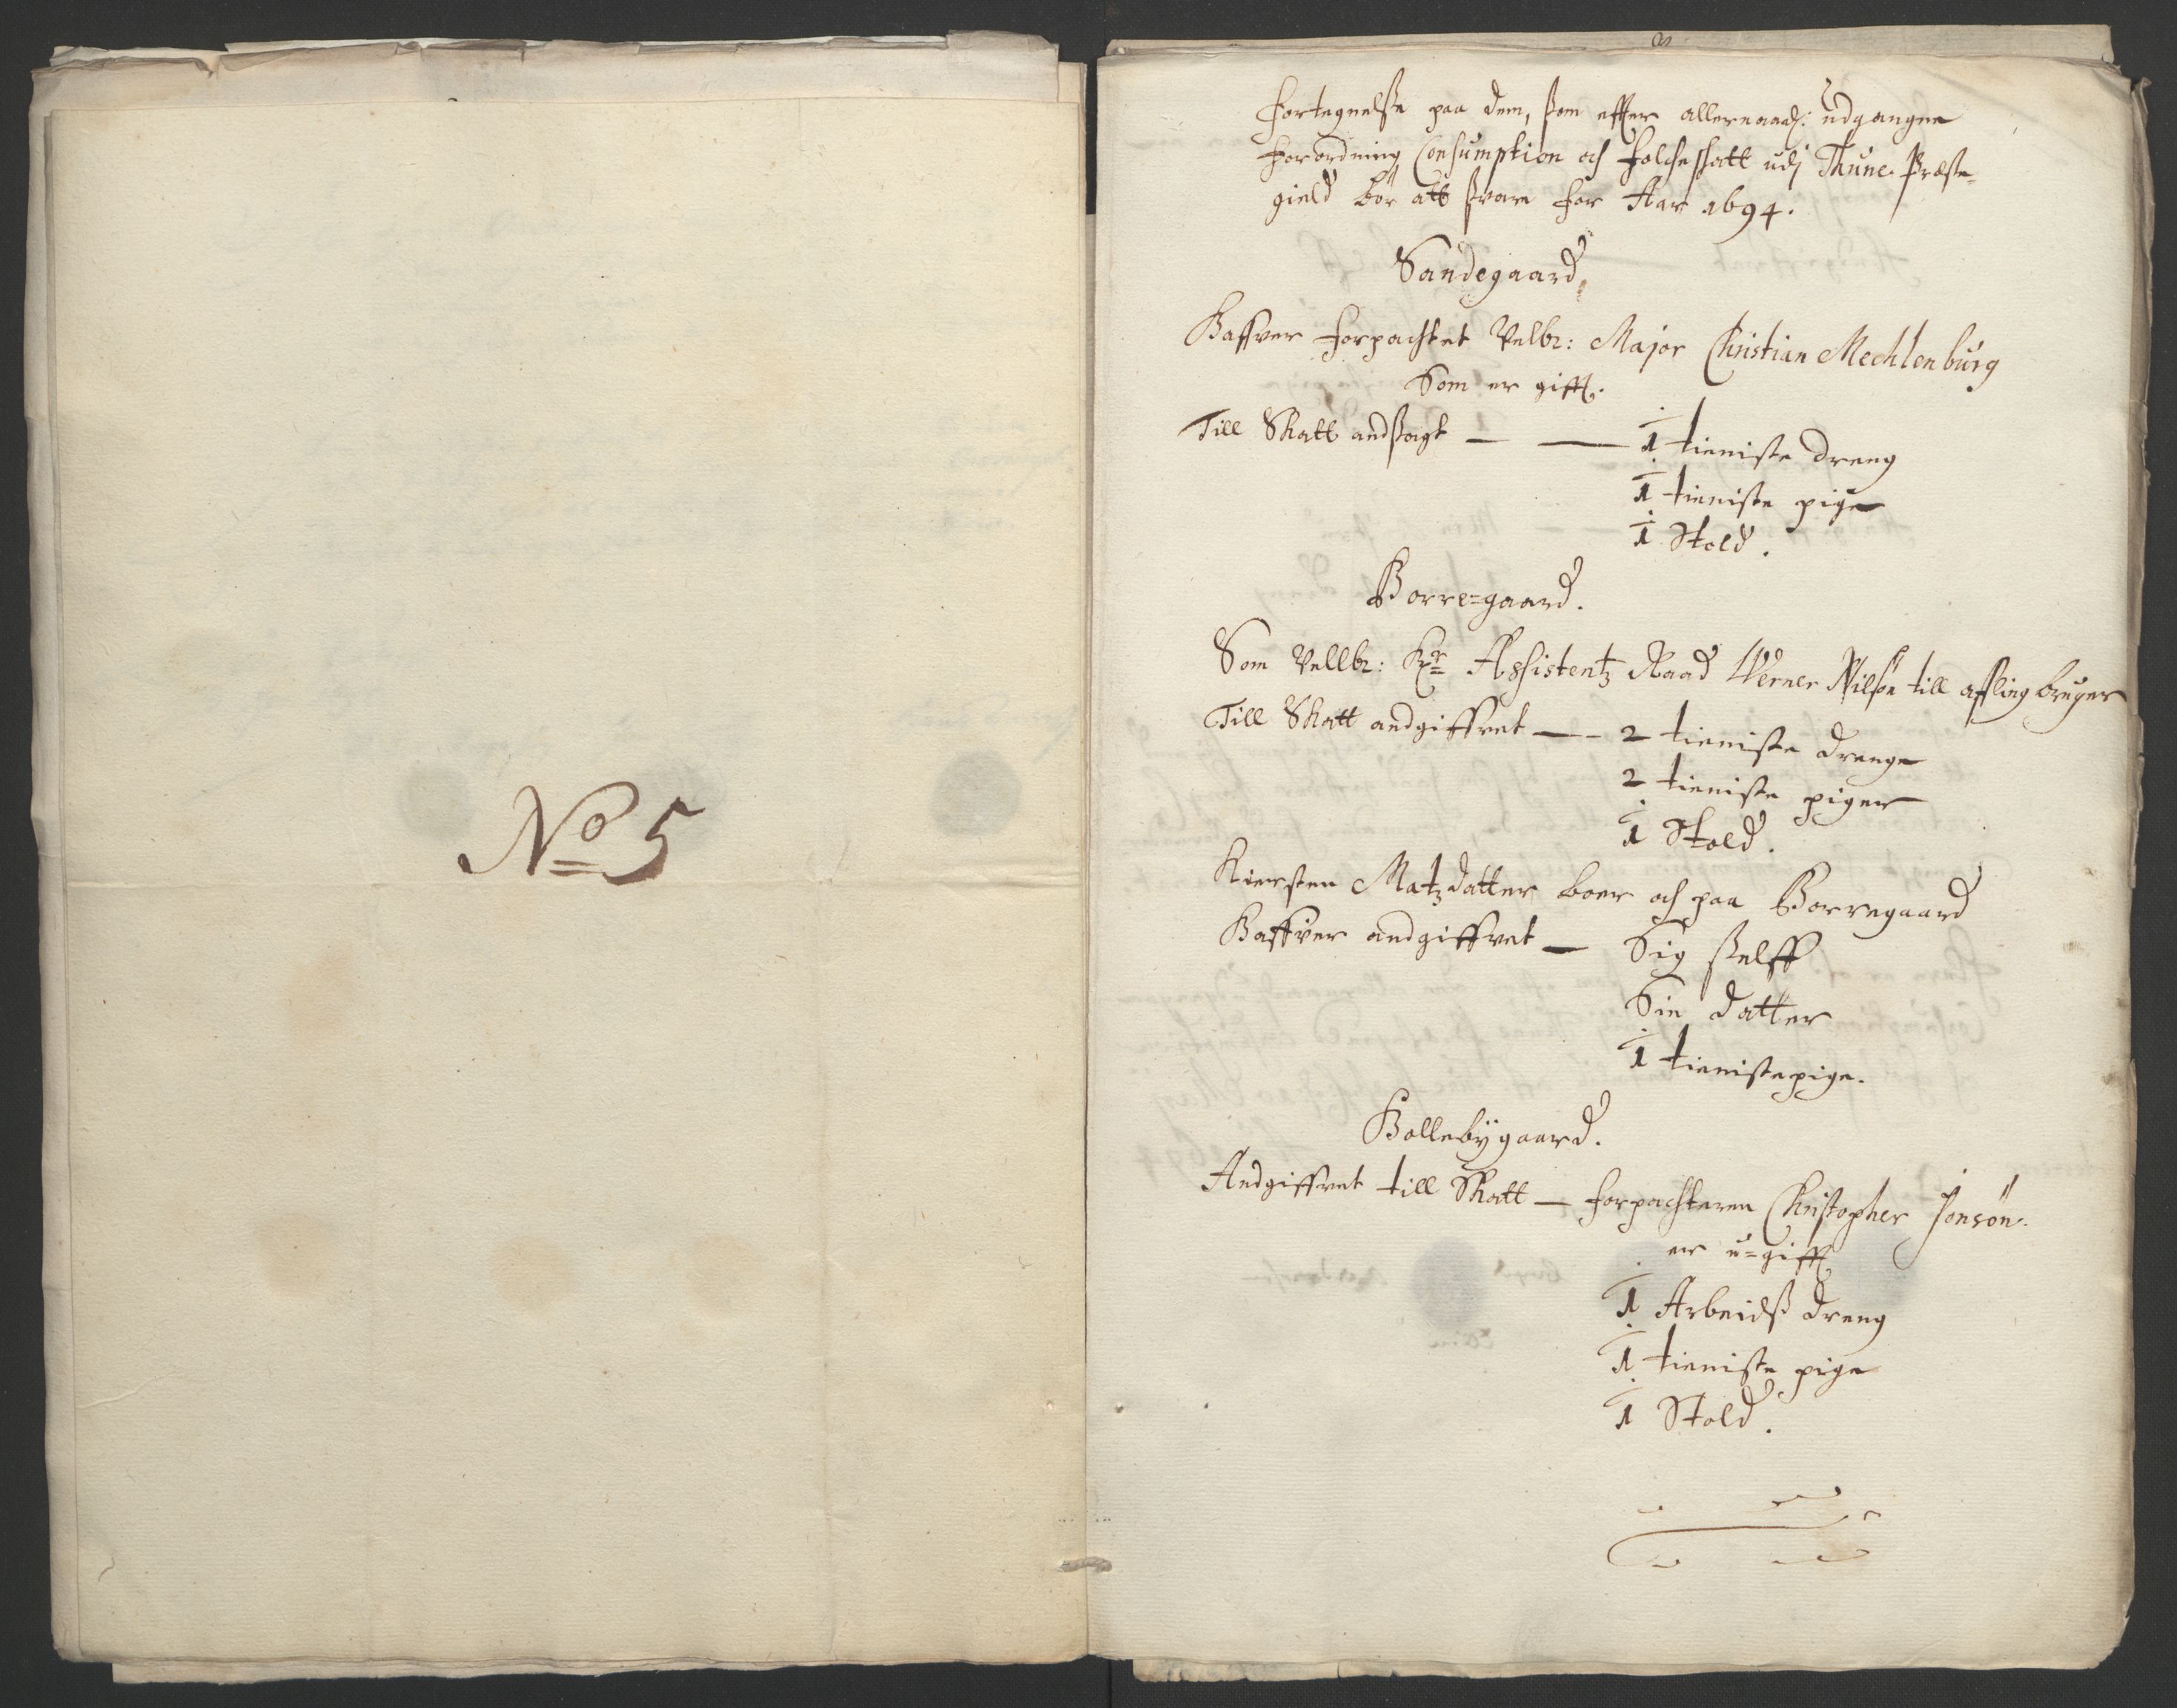 No 5
Fortegnelsße paa dem, ßom effter allernaad: udgangne
Forordning Consumption och Folcheskatt udj Thune Præste-
gield bör att ßvare for Aar 1694.
Sandegaard,
Haffver forpachtet Velbr: Major Christian Mechlenburg
Som er gifft.
Till Skatt andßagt — — 1 tieniste dreng
1 tieniste pige
1 Stold.
Borre-gaard.
Som Vellbr: Hr Assistentz Raad Werner Nilsön till affling bruger
Till Skatt andgiffvet — 2 tieniste drenge
2 tieniste piger
1 Stold.
Kiersten Matzdatter boer och paa Borregaard
Haffver andgiffvet — Sig ßelff
Sin datter
1 tienistepige.
Hollebÿgaard.
Andgiffvet till Skatt — forpachteren Christopher Jonsön.
er u-gifft
1 Arbeidß dreng
1 tieniste pige
1 Stold.